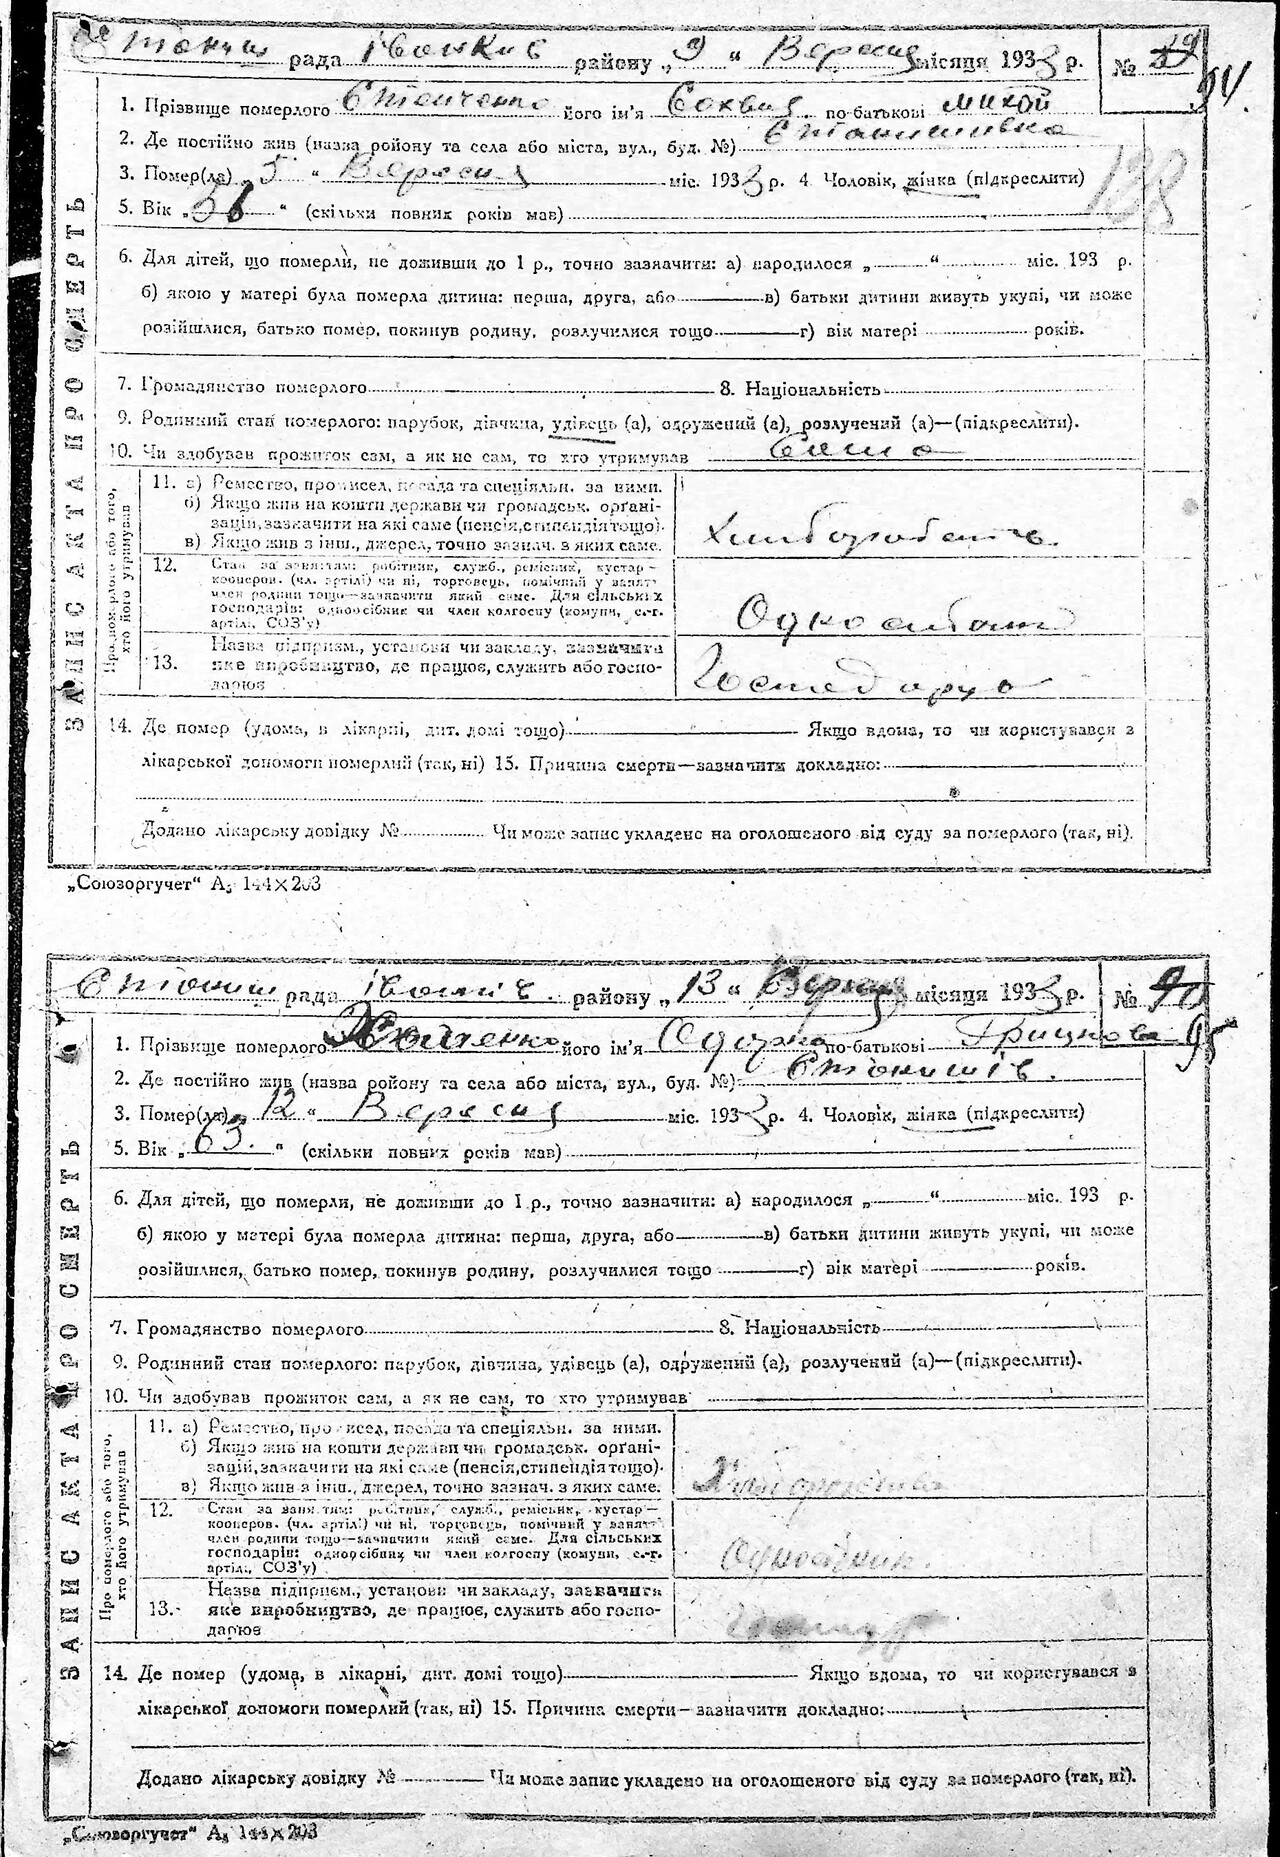 Станиш рада Іванків району „9“ Вересня місяця 1933 р. № 94.
1. Прізвище померлого Степченко його ім'я Соквия по-батькові Михай
2. Де постійно жив (назва ройону та села або міста, вул., буд. №) Станишивка
138
3. Помер(ла) „5“ Вересня міс. 1933 р. 4. Чоловік, жінка (підкреслити)
5. Вік „ “ (скільки повних років мав)
6. Для дітей, що померли, не доживши до 1 р., точно зазначити: а) народилося „ “ міс. 193 р.
б) якою у матері була померла дитина: перша, друга, або в) батьки дитини живуть укупі, чи може
розійшлися, батько помер, покинув родину, розлучилися тощо г) вік матері років.
7. Громадянство померлого 8. Національність
9. Родинний стан померлого: парубок, дівчина, удівець (а), одружений (а), розлучений (а)—(підкреслити).
10. Чи здобував прожиток сам, а як не сам, то хто утримував Сама
ЗАПИС АКТА ПРО СМЕРТЬ
Про померлого або того, хто його утримував
11. а) Ремество, промисел, посада та спеціяльн. за ними.
б) Якщо жив на кошти держави чи громадськ. орґані-
зацій, зазначити на які саме (пенсія, стипендія тощо).
в) Якщо жив з інш., джерел, точно зазнач. з яких саме.
12. Стан за заняттям: робітник, служб., ремісник, кустар—
кооперов. (чл. артілі) чи ні, торговець, помічний у занятт
член родини тощо—зазначити який саме. Для сільських
господарів: одноосібник чи член колгоспу (комуни, с.-г.
артіл., СОЗ'у)
13. Назва підприєм., установи чи закладу, зазначити
яке виробництво, де працює, служить або госпо-
дарює
14. Де помер (удома, в лікарні, дит. домі тощо) Якщо вдома, то чи користувався з
лікарської допомоги померлий (так, ні) 15. Причина смерти—зазначити докладно:
Додано лікарську довідку № Чи може запис укладено на оголошеного від суду за померлого (так, ні).
„Союзоргучет“ А₅ 144×203
Станиш рада Іванків району „13“ Вересня місяця 1933 р. № 95
1. Прізвище померлого його ім'я Одарка по-батькові Грицкова
2. Де постійно жив (назва ройону та села або міста, вул., буд. №) Станишів.
3. Помер(ла) 12“ Вересня міс. 1933 р. 4. Чоловік, жінка (підкреслити)
5. Вік „63.“ (скільки повних років мав)
6. Для дітей, що померли, не доживши до 1 р., точно зазначити: а) народилося „ “ міс. 193 р.
б) якою у матері була померла дитина: перша, друга, або в) батьки дитини живуть укупі, чи може
розійшлися, батько помер, покинув родину, розлучилися тощо г) вік матері років.
7. Громадянство померлого 8. Національність
9. Родинний стан померлого: парубок, дівчина, удівець (а), одружений (а), розлучений (а)—(підкреслити).
10. Чи здобував прожиток сам, а як не сам, то хто утримував
ЗАПИС АКТА ПРО СМЕРТЬ
Про померлого або того, хто його утримував
11. а) Ремество, промисел, посада та спеціяльн. за ними.
б) Якщо жив на кошти держави чи громадськ. орґані-
зацій, зазначити на які саме (пенсія, стипендія тощо).
в) Якщо жив з інш., джерел, точно зазнач. з яких саме.
12. Стан за заняттям: робітник, служб., ремісник, кустар—
кооперов. (чл. артілі) чи ні, торговець, помічний у занятт
член родини тощо—зазначити який саме. Для сільських
господарів: одноосібник чи член колгоспу (комуни, с.-г.
артіл., СОЗ'у)
Одноосібник.
13. Назва підприєм., установи чи закладу, зазначити
яке виробництво, де працює, служить або госпо-
дарює
14. Де помер (удома, в лікарні, дит. домі тощо) Якщо вдома, то чи користувався з
лікарської допомоги померлий (так, ні) 15. Причина смерти—зазначити докладно:
Додано лікарську довідку № Чи може запис укладено на оголошеного від суду за померлого (так, ні).
„Союзоргучет“ А₅ 144×203